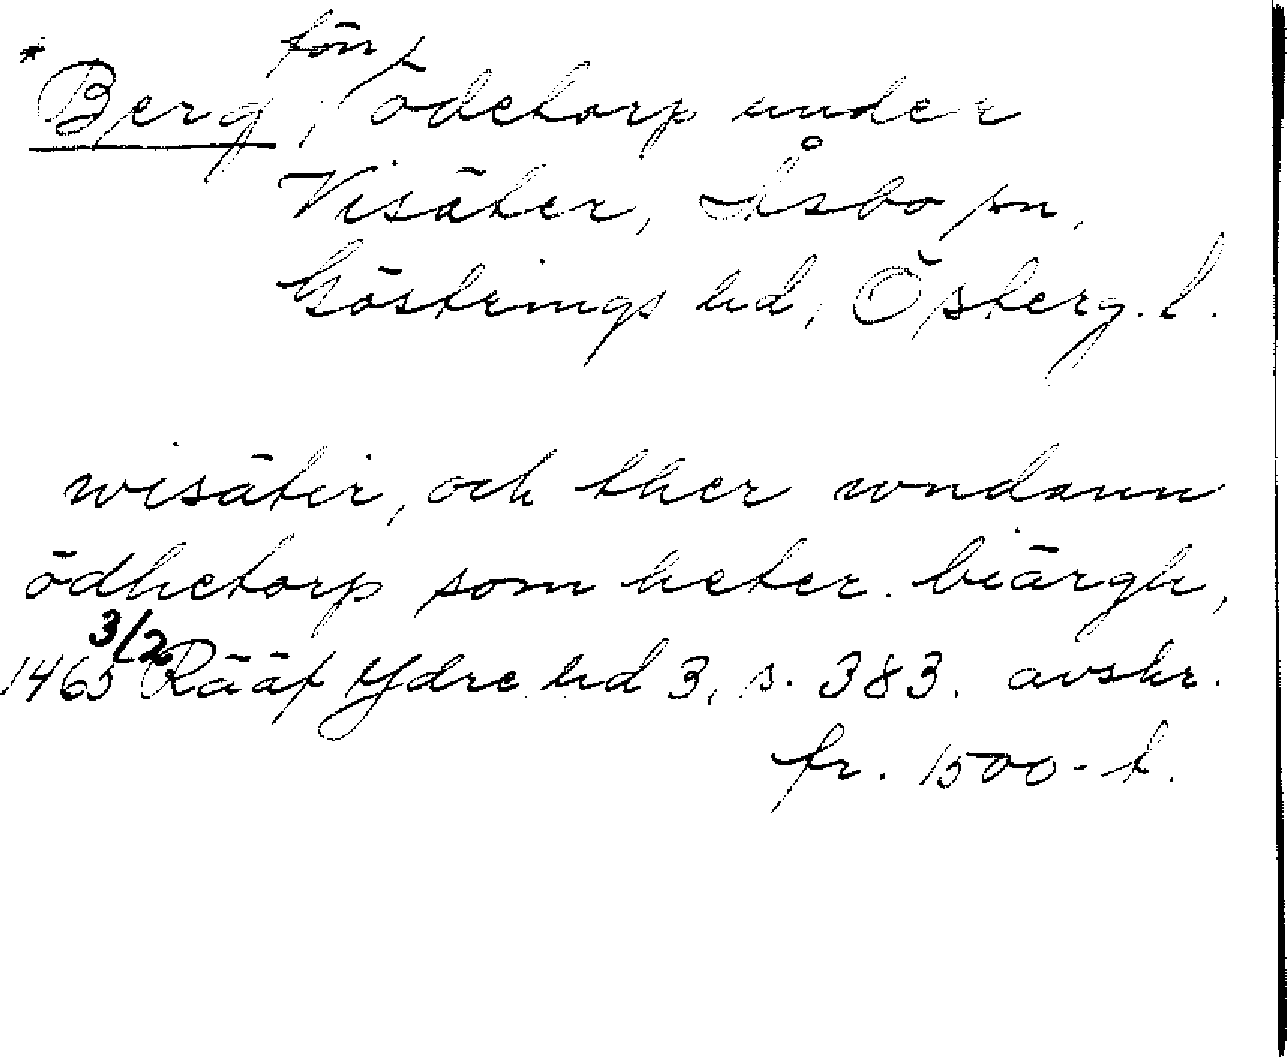 *Berg, förr ödetorp under
Visäter, Åsbo sn,
Göstrings hd, Österg. l.
wisätir, och ther wndann
ödhetorp som heter biärgh,
1465 3/2 Rääf Ydre hd 3, s. 383. avskr.
fr. 1500-t.